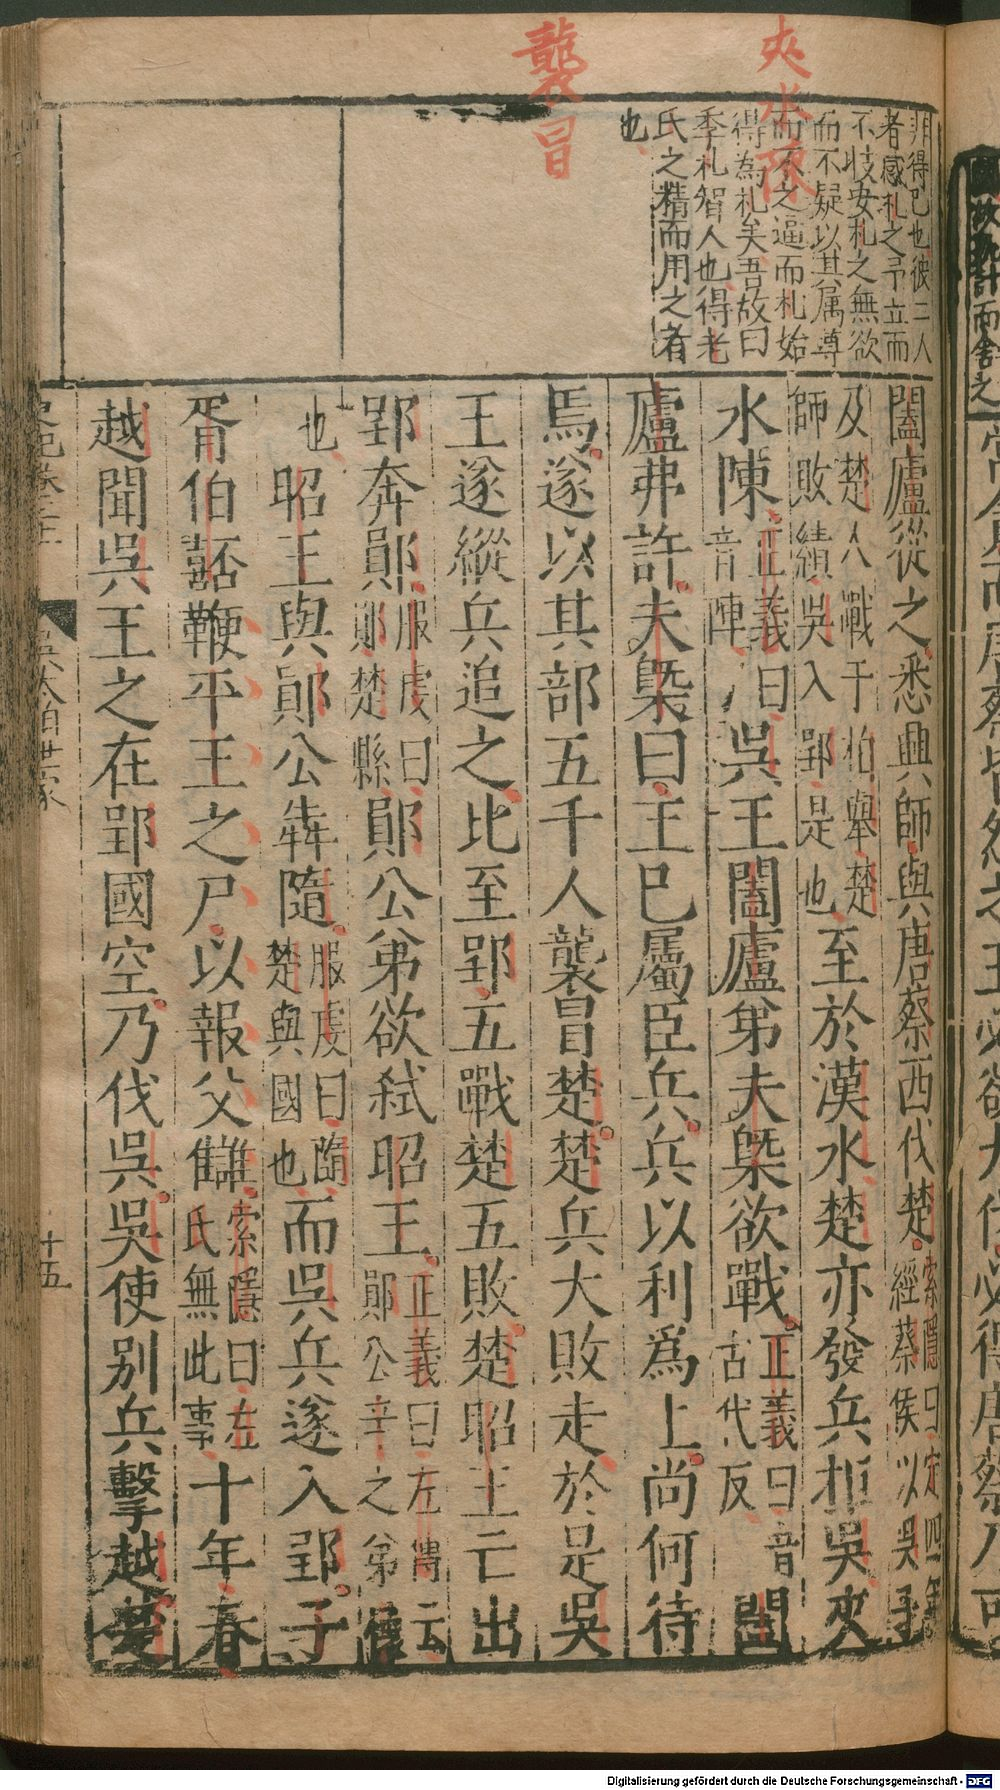 夾水陳
襲冒
非得已也彼二人
者感札之予立而
不忮安札之無欲
而不疑以其属尊
而不之逼而札始
得為札矣吾故曰
季札智人也得老
氏之精而用之者
也
闔廬從之悉興師與唐蔡西伐楚索隱曰定四年經蔡侯以吳子
及楚人戰于柏舉楚師敗績吳入郢是也至於漢水楚亦發兵拒吳夾
水陳正義曰音陣吳王闔廬弟夫槩欲戰正義曰音古代反闔
廬弗許夫槩曰王已屬臣兵兵以利爲上尚何待
焉遂以其部五千人襲冒楚楚兵大敗走於是吳
王遂縱兵追之比至郢五戰楚五敗楚昭王亡出
郢奔鄖服虔曰鄖楚縣鄖公弟欲弒昭王正義曰左傳云鄖公辛之弟懷
也昭王與鄖公犇隨服虔曰隨楚與國也而吳兵遂入郢子
胥伯嚭鞭平王之尸以報父讎索隱曰左氏無此事十年春
越聞吳王之在郢國空乃伐吳吳使别兵擊越楚
史記卷三十一
吳太伯世家
十五
而舍之
Digitalisierung gefördert durch die Deutsche Forschungsgemeinschaft - DFG